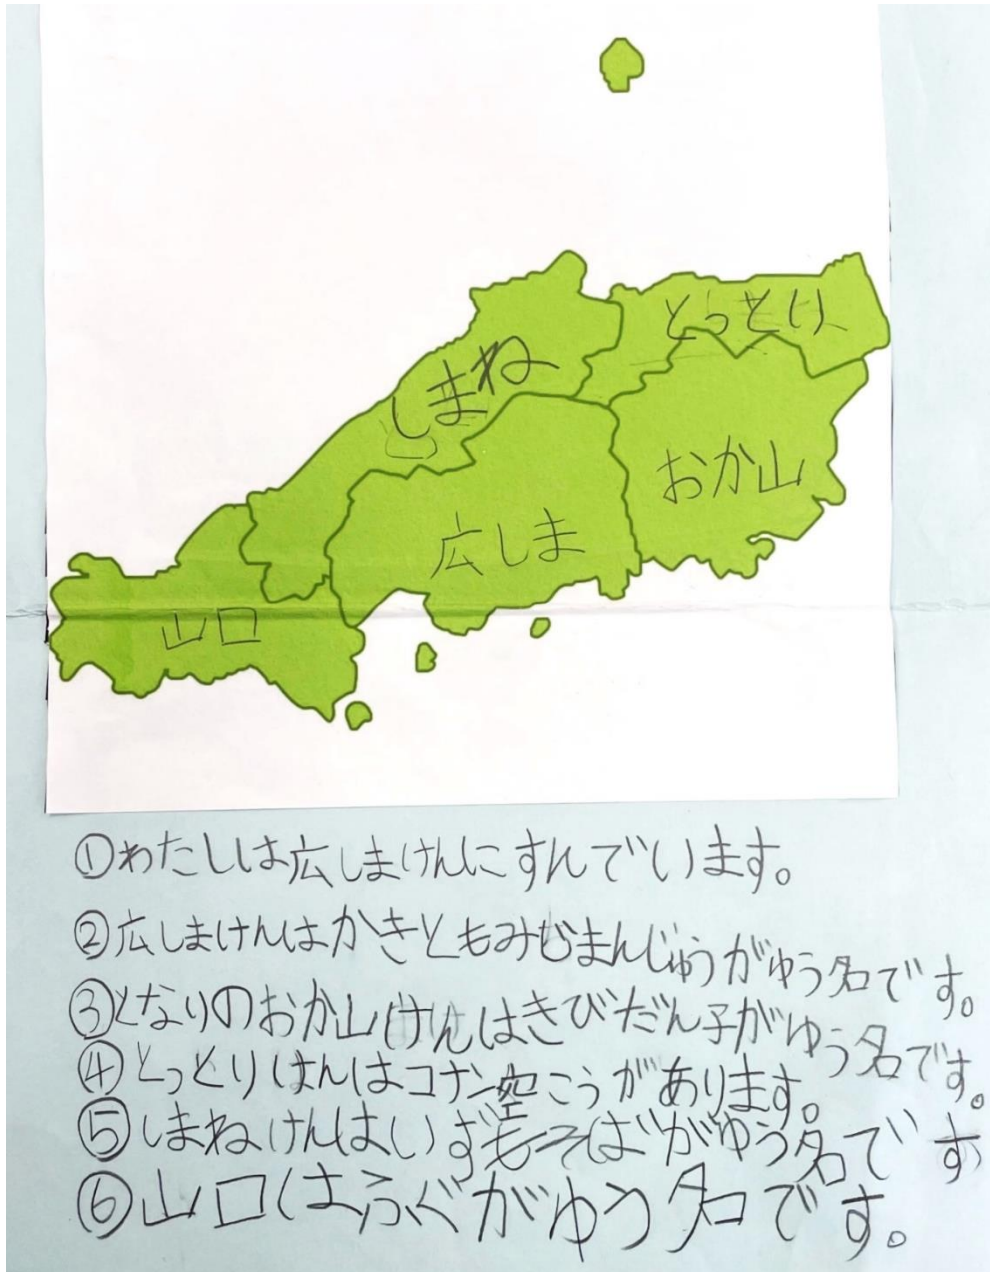 とっとり
しまね
おか山
広しま
山口
①わたしは広しまけんにすんでいます。
②広しまけんはかきともみじまんじゅうがゆう名です。
③となりのおか山けんはきびだん子がゆう名です。
④とっとりけんはコナン空こうがあります。
⑤しまねけんはいずもそばがゆう名です
⑥山口はふぐがゆう名です。